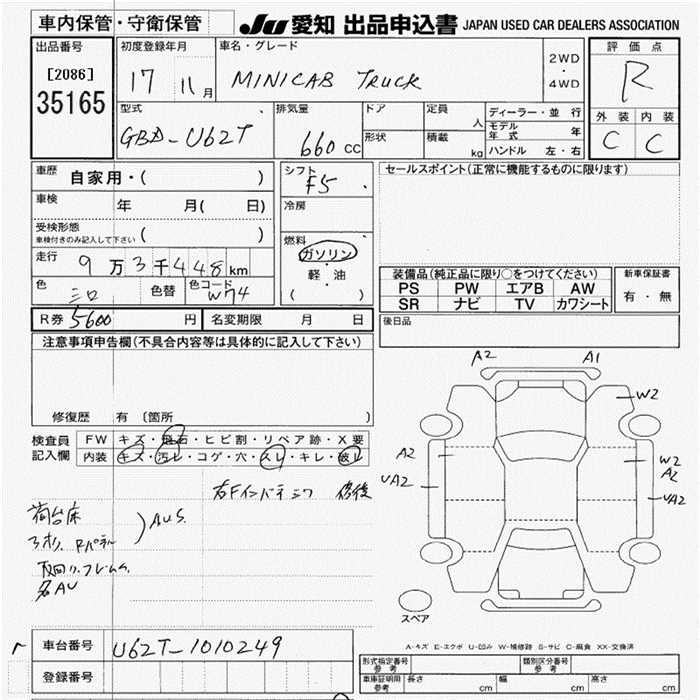 車内保管・守衛保管 JU 愛知 出品申込書 JAPAN USED CAR DEALERS ASSOCIATION
出品番号 初度登録年月 車名・グレード 評価点
[2086] 17 11月 MINICAB TRUCK 2WD・4WD R
35165
型式 排気量 ドア 定員 人 ディーラー・並行 外装 内装
GBD-U62T 660cc 形状 積載 kg モデル年式 年 C C
ハンドル 左・右
車歴 自家用・( ) シフト F5 セールスポイント(正常に機能するものに限ります)
車検 年 月( 日) 冷房
受検形態
車検付きのみ記入して下さい ( ) 燃料
走行 9万3千448km ガソリン・軽・油 ( )
色 シロ 色替 色コード W74
装備品(純正品に限り○をつけてください) 新車保証書
PS PW エアB AW 有・無
SR ナビ TV カワシート
R券 5600 円 名変期限 月 日 後日品
注意事項申告欄(不具合内容等は具体的に記入して下さい)
修復歴 有 〔箇所 〕
検査員記入欄 FW キズ・飛石・ヒビ割・リペア跡・X要
内装 キズ・汚レ・コゲ・穴・スレ・キレ・破レ
A2 A1
W2
A2 W2
UA2 A2
UA2
右Fインパネ シワ 修復
荷台床
AUS.
スペア
A-キズ E-エクボ U-凹み W-補修跡 S-サビ C-腐食 XX-交換済
車台番号 U62T-1010249
登録番号
形式指定番号 参考 類別区分番号 参考
車庫証明用 参考 長さ cm 幅 cm 高さ cm